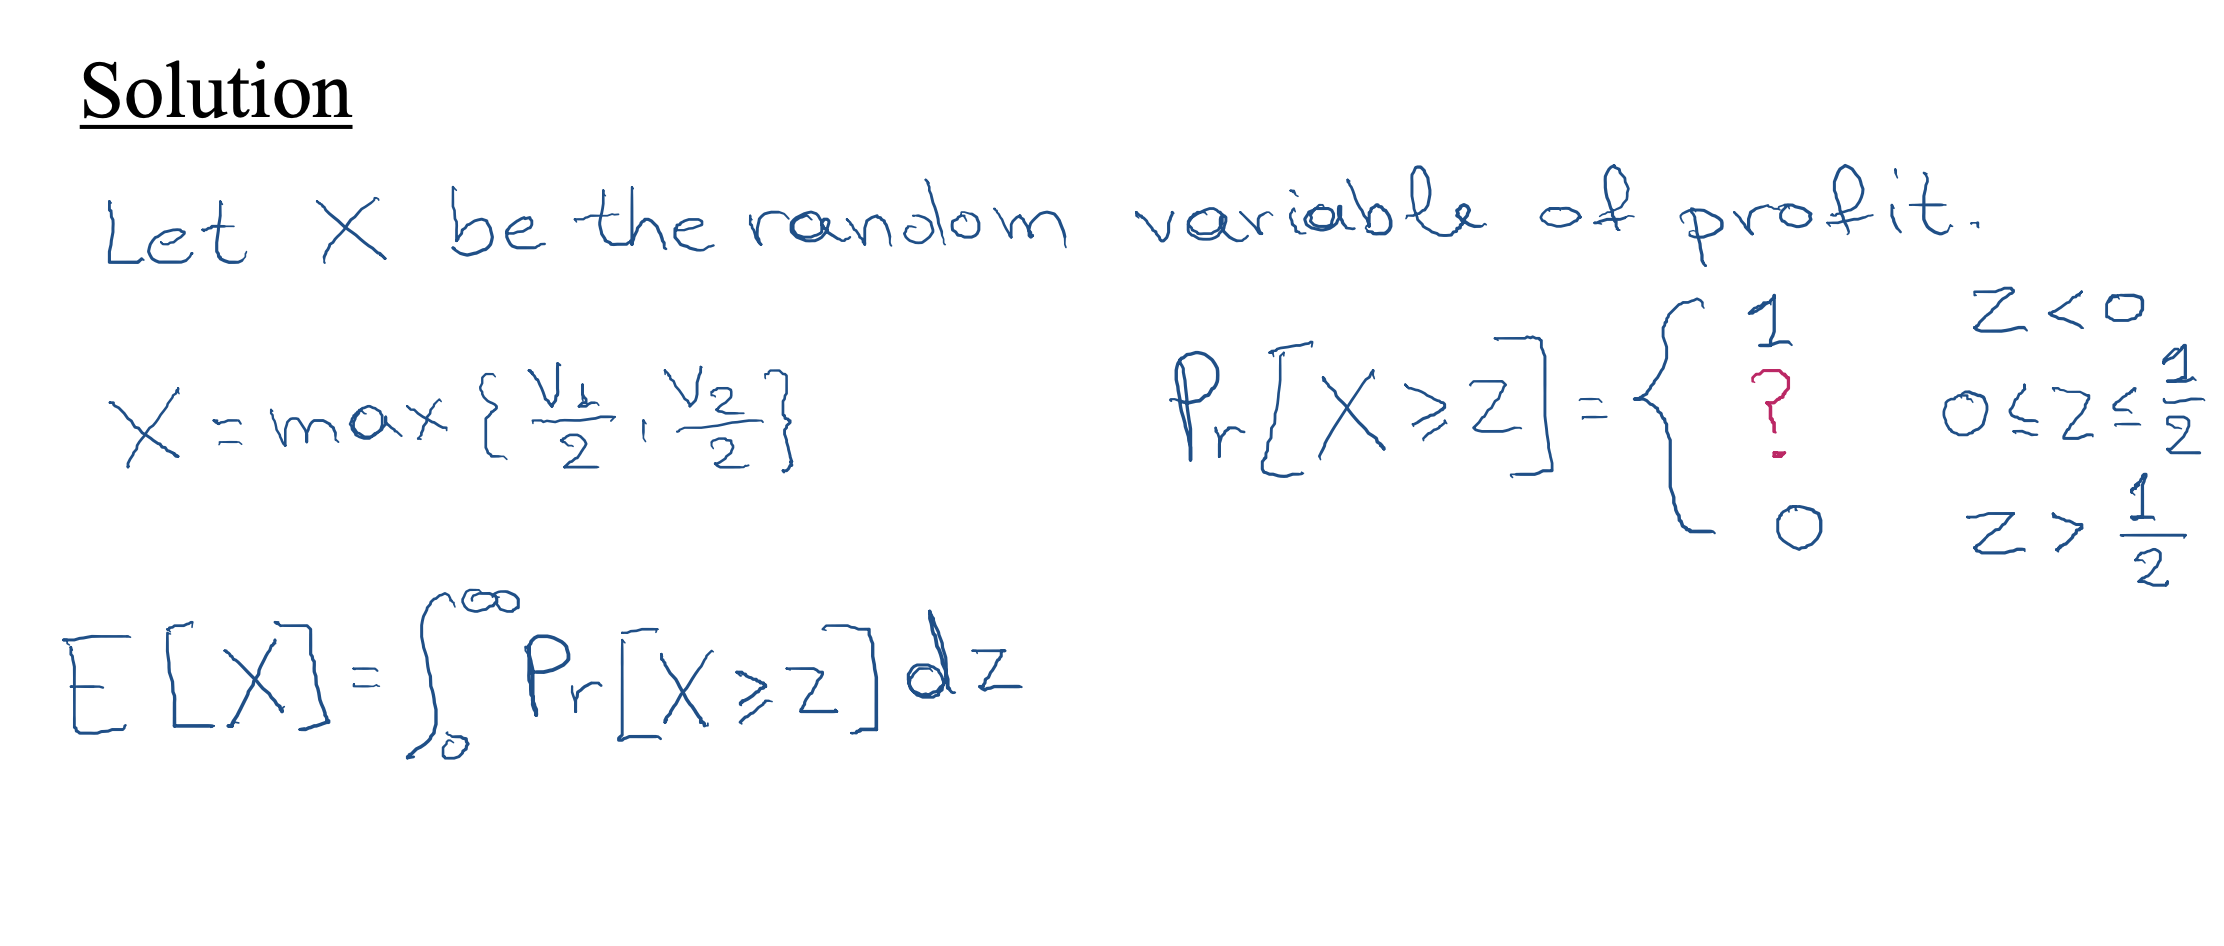 Solution
Let X be the random variable of profit.
X = max { V₁/2 , V₂/2 }
Pr[X ⩾ z] = { 1 z < 0
? 0 ≤ z ≤ 1/2
0 z > 1/2
E[X] = ∫₀^∞ Pr[X ⩾ z] dz